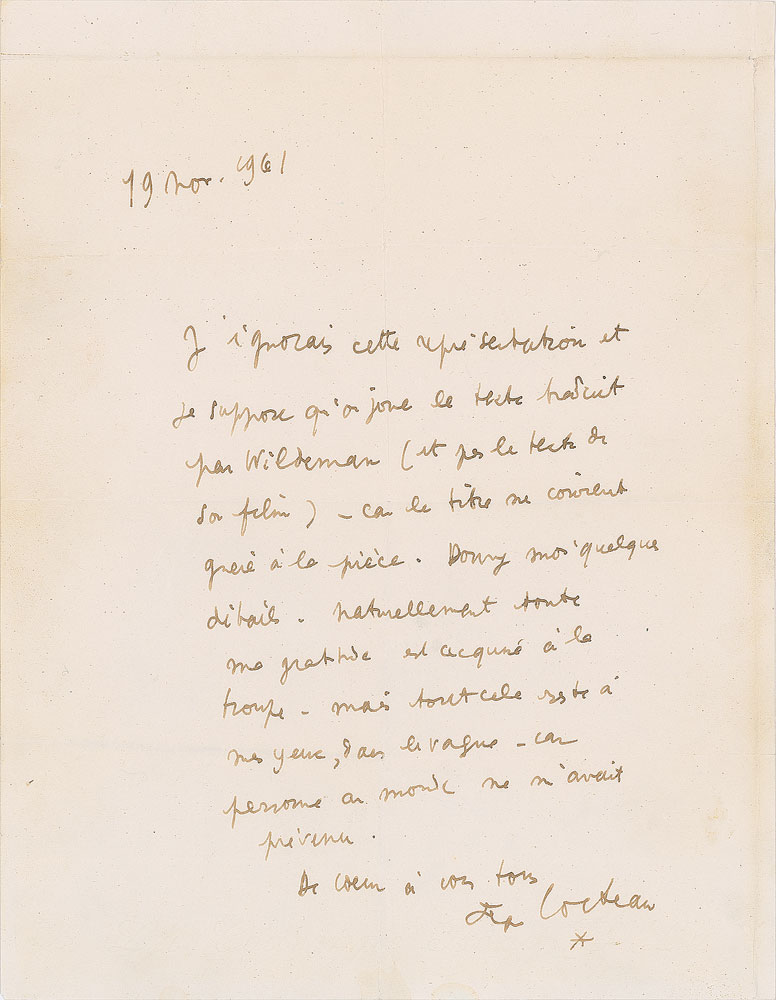 19 nov. 1961
J'ignorais cette représentation et
je suppose qu'on joue le texte traduit
par Wildeman (et pas le texte de
son film) - car le titre ne convient
guère à la pièce. Donnez moi quelques
détails. Naturellement toute
ma gratitude est acquise à la
troupe - mais tout cela reste à
mes yeux, dans le vague - car
personne au monde ne m'avait
prévenu.
De coeur à vous tous
Jean Cocteau
*